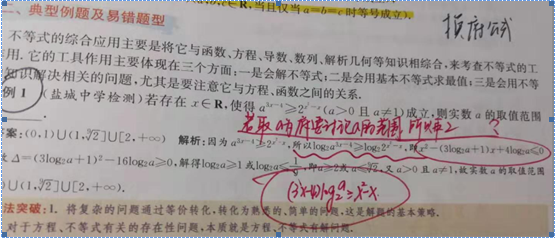 ∈R,当且仅当a=b=c时等号成立).
一、典型例题及易错题型
换底公式
不等式的综合应用主要是将它与函数、方程、导数、数列、解析几何等知识相综合,来考查不等式的工
用. 它的工具作用主要体现在三个方面:一是会解不等式;二是会用基本不等式求最值;三是会用不等
知识解决相关的问题,尤其是要注意它与方程、函数之间的关系.
例 1 (盐城中学检测)若存在 x∈R,使得 a^{3x-4}≥2^{x²-x}(a>0 且 a≠1)成立,则实数 a 的取值范围
若取a为底要讨论a的范围 所以取2 ?
案:(0,1)∪(1,∛2]∪[2,+∞) 解析:因为 a^{3x-4}≥2^{x²-x},所以log₂a^{3x-4}≥log₂2^{x²-x},即x²-(3log₂a+1)x+4log₂a≤0
Δ=(3log₂a+1)²-16log₂a≥0,解得log₂a≥1或log₂a≤1/9,即a≥2或a≤ 又 a>0 且 a≠1,故实数 a 的取值范围
∪(1, ]∪[2,+∞).
(3x-4)log₂a≥x²-x
法突破:1. 将复杂的问题通过等价转化,转化为熟悉的、简单的问题,这是解题的基本策略.
对于方程、不等式有关的存在性问题,本质就是方程、不等式有解问题.